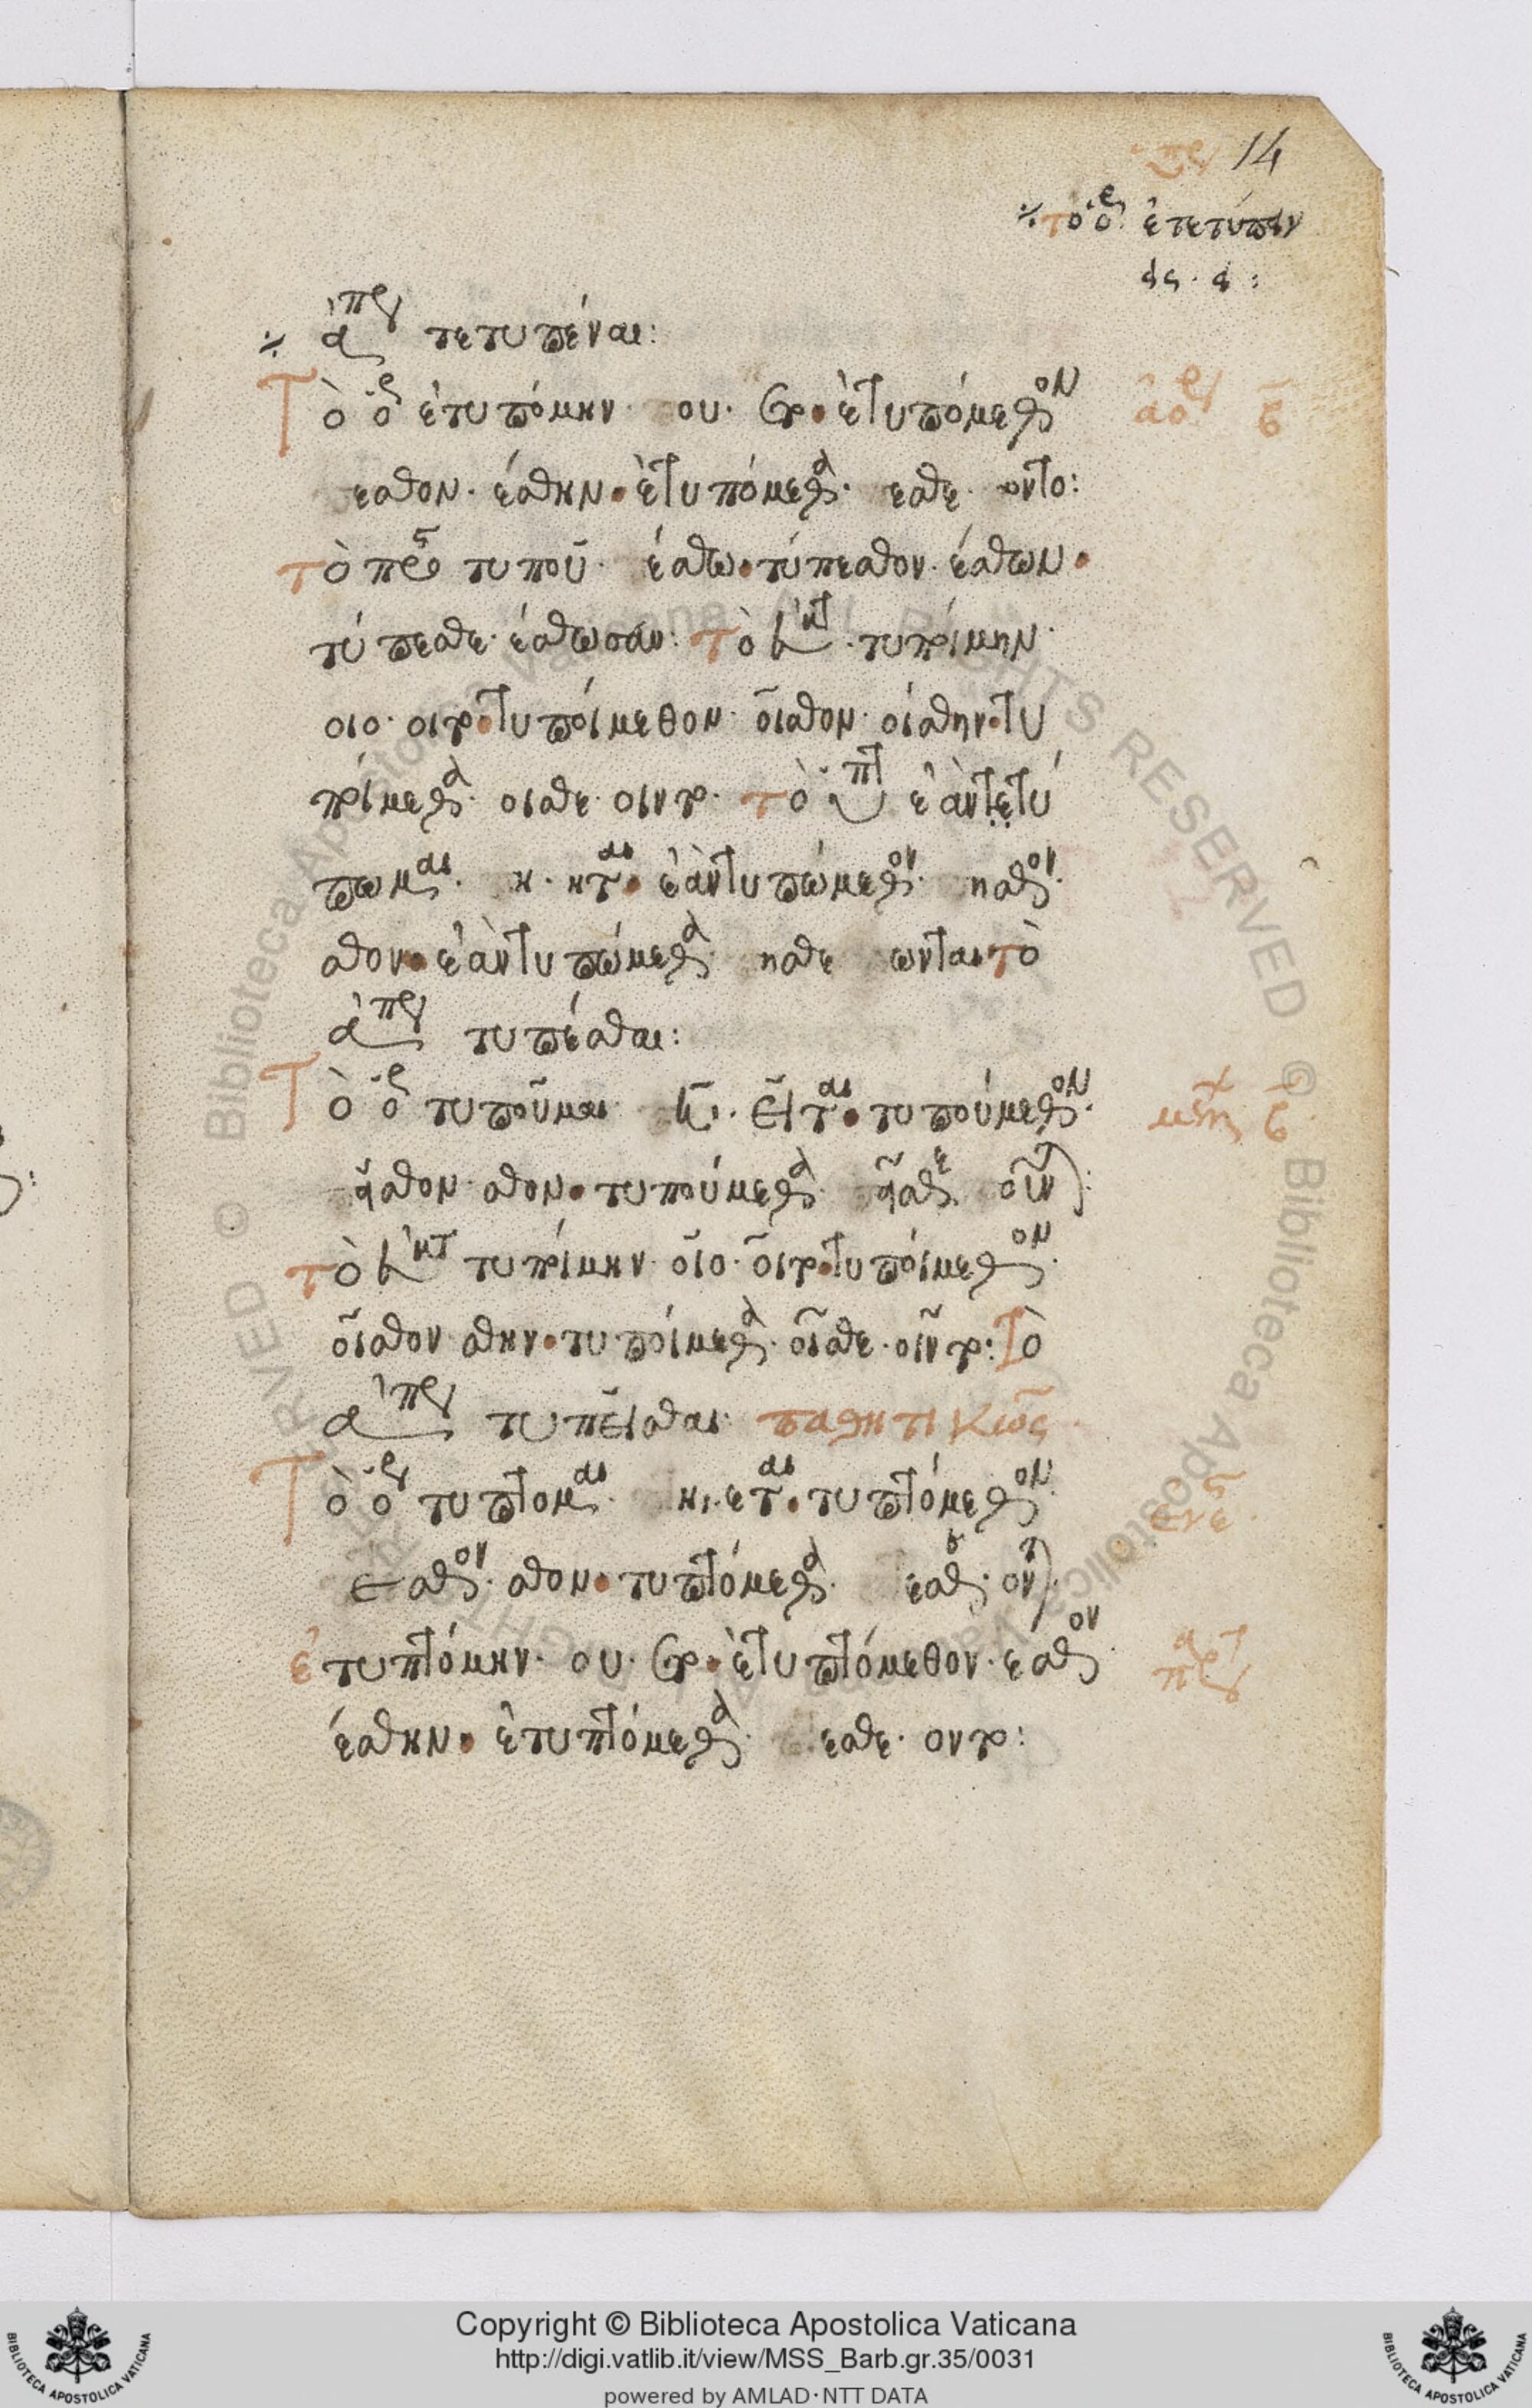 ὑπερ 14
⁒ τὸ ὁρ ἐτετύπειν
εις · ει :
⁒ ἀπαρ τετυπέναι:
Τὸ ὁρ ἐτυπόμην · ου · ετο · ἐτυπόμεθον
εσθον · έσθην · ἐτυπόμεθα · εσθε · οντο:
τὸ προς τυποῦ · έσθω · τύπεσθον · έσθων ·
τύπεσθε · έσθωσαν: τὸ εὐκτ · τυποίμην ·
οιο · οιτο · τυποίμεθον · οισθον · οίσθην · τυ
ποίμεθα · οισθε · οιντο · τὸ ὑποτ ἐὰν τετύ
πωμαι · η · ηται · ἐὰν τυπώμεθον · ησθον ·
σθον · ἐὰν τυπώμεθα · ησθε ωνται · τὸ
ἀπαρ τυπέσθαι:
Τὸ ὁρ τυποῦμαι ῆ · εῖται · τυπούμεθον ·
εῖσθον · σθον · τυπούμεθα · εῖσθε οῦνται:
τὸ εὐκτ τυποίμην · οῖο · οῖτο · τυποίμεθον ·
οῖσθον σθην · τυποίμεθα · οῖσθε · οῖντο: τὸ
ἀπαρ τυπεῖσθαι · παθητικῶς ·
Τὸ ὁρ τύπτομαι · η · εται · τυπτόμεθον ·
εσθον · σθον · τυπτόμεθα · εσθε · ονται
ἐτυπτόμην · ου · ετο · ἐτυπτόμεθον · έσθον ·
έσθην · ἐτυπτόμεθα · εσθε · οντο:
ἀορ β
μέλλ β
ενες ·
παρατ
Copyright © Biblioteca Apostolica Vaticana
http://digi.vatlib.it/view/MSS_Barb.gr.35/0031
powered by AMLAD·NTT DATA